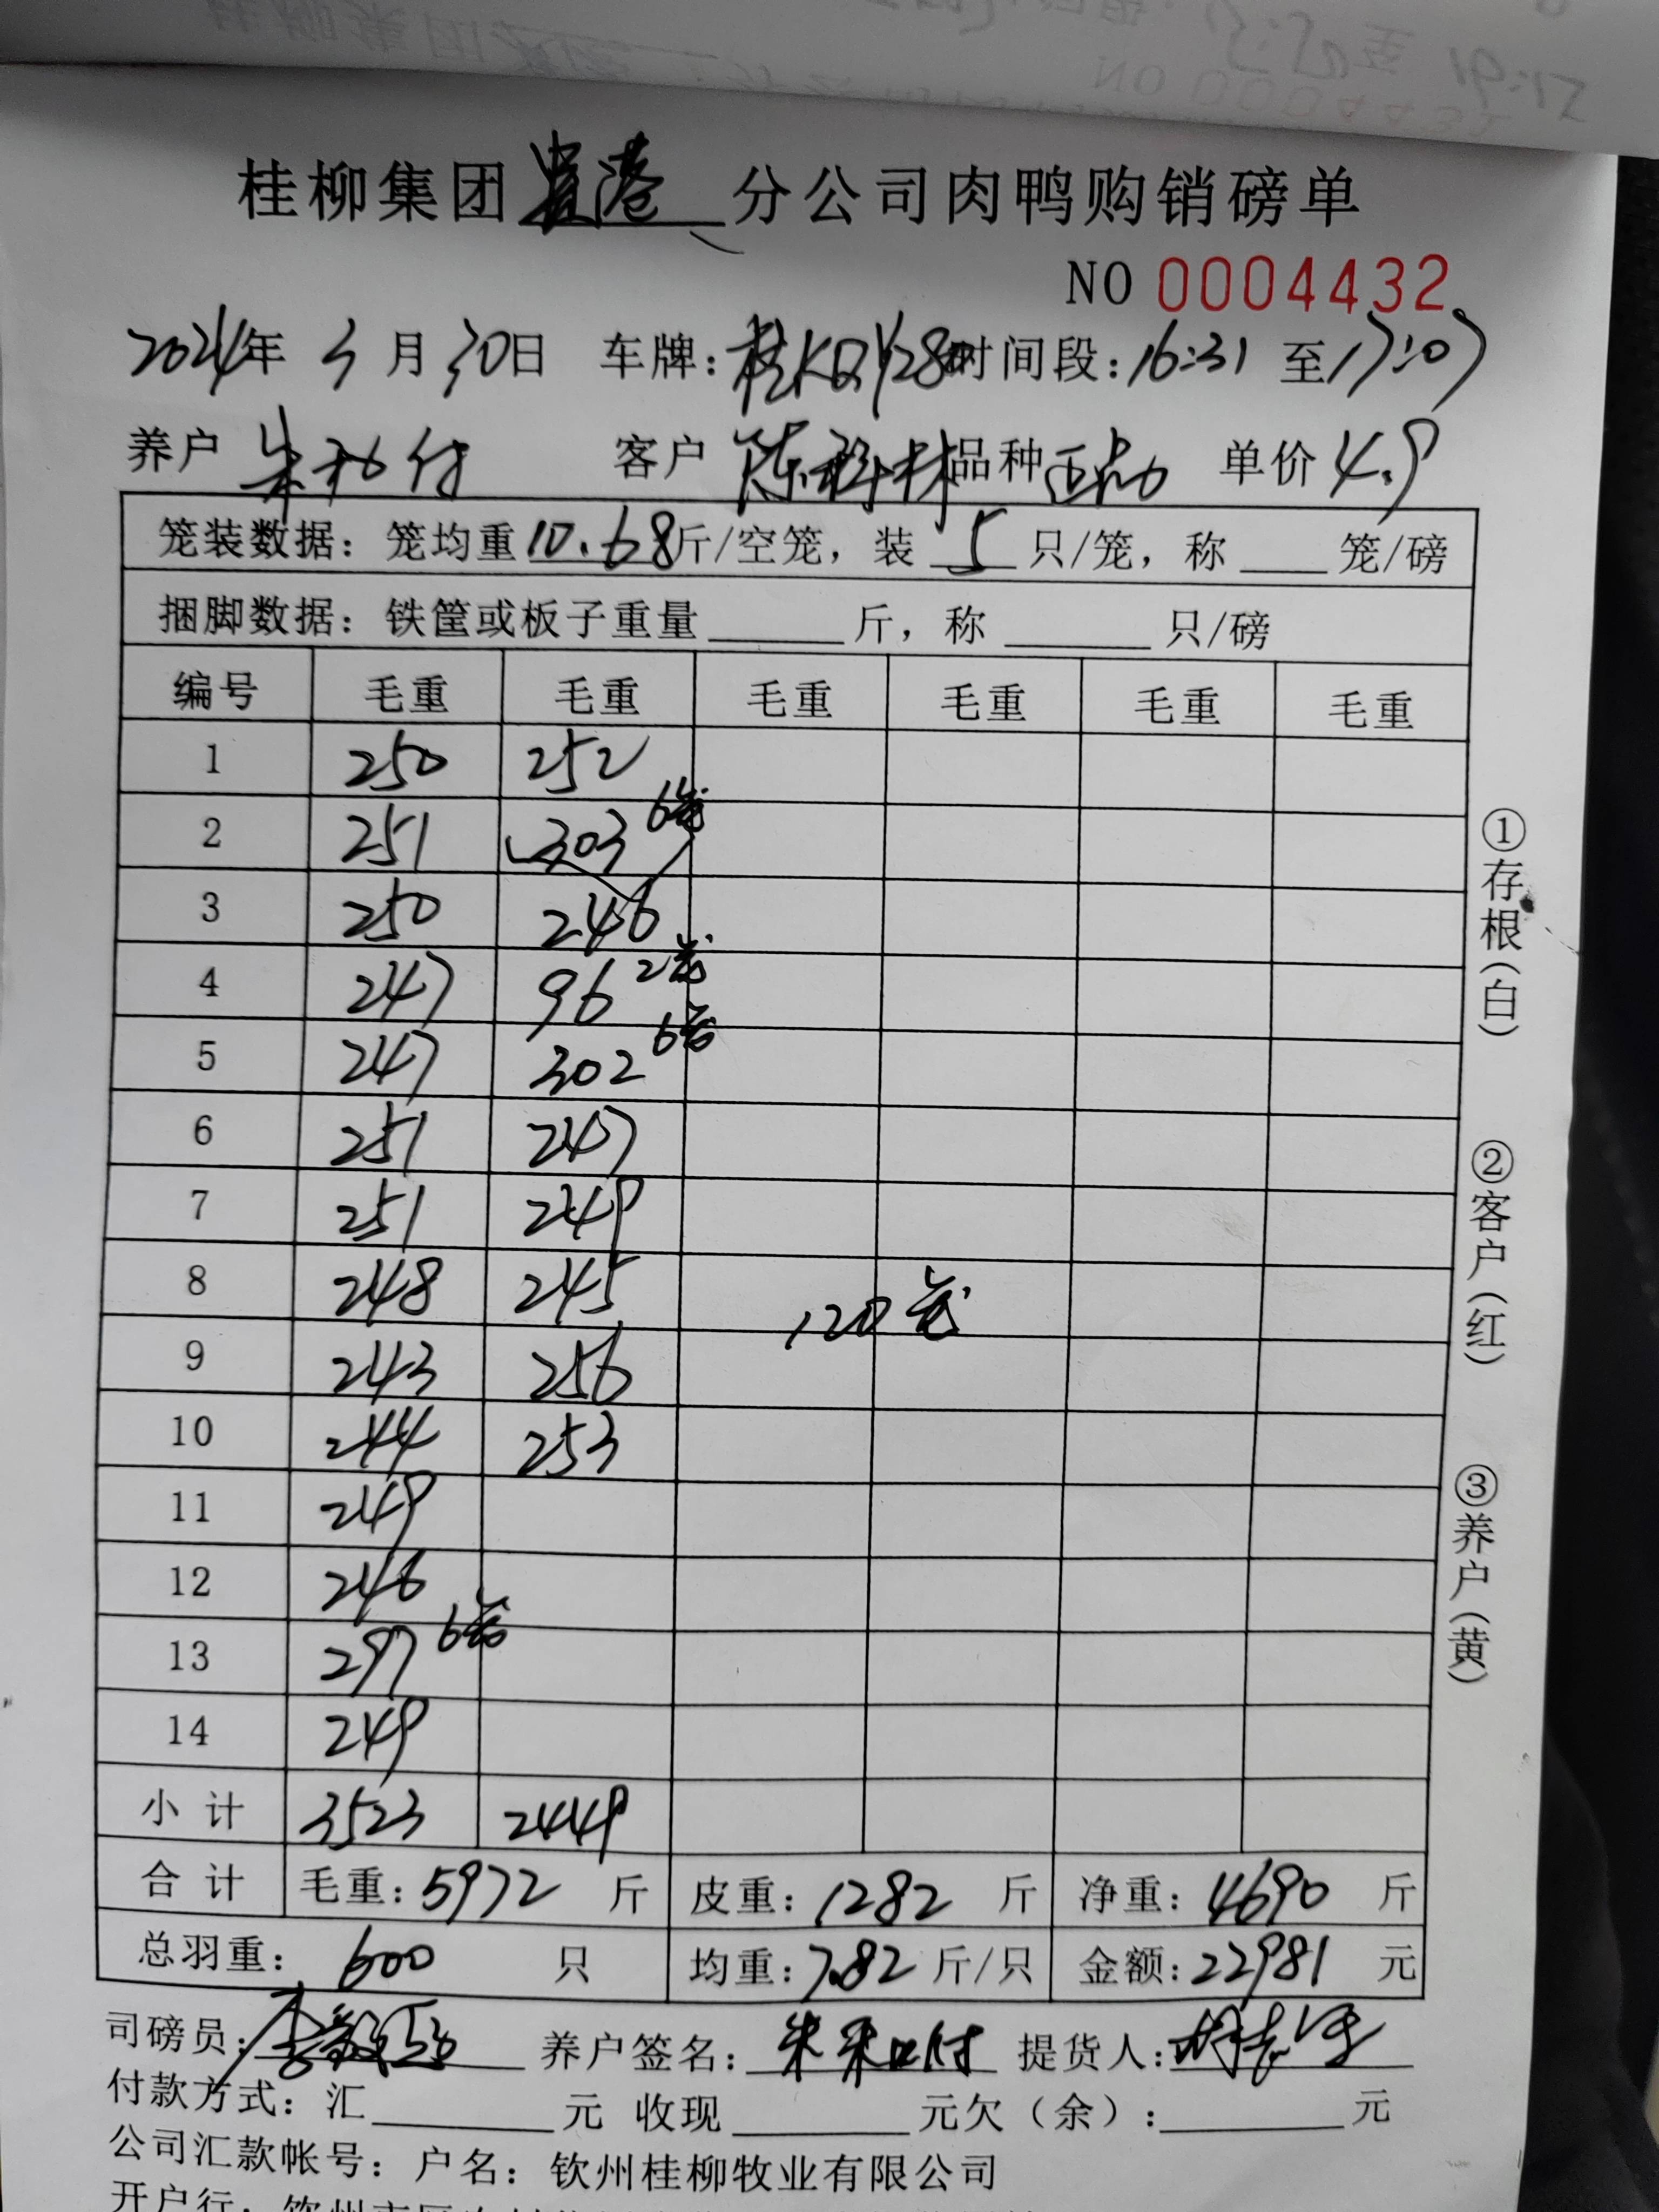 桂柳集团贵港分公司肉鸭购销磅单
NO 0004432
2024年 3月30日 车牌：桂KQY280 时间段：16:31 至17:07
养户 朱和付 客户 陈科林 品种 单价 4.9
笼装数据：笼均重10.68斤/空笼，装 5 只/笼，称____笼/磅
捆脚数据：铁筐或板子重量______斤，称______只/磅
编号 毛重 毛重 毛重 毛重 毛重 毛重
1 250 252
2 251 303 6笼
3 250 246
4 247 96 2笼
5 247 302 6笼
6 251 247
7 251 249
8 248 245 120笼
9 243 256
10 244 253
11 249
12 246
13 297 6笼
14 249
小计 3523 2449
合计 毛重：5972 斤 皮重：1282 斤 净重：4690 斤
总羽重：600 只 均重：7.82 斤/只 金额：22981 元
司磅员： 养户签名：朱和付 提货人：
付款方式：汇______元 收现______元欠（余）：______元
公司汇款帐号：户名：钦州桂柳牧业有限公司
开户行：钦州市区
①存根（白）
②客户（红）
③养户（黄）